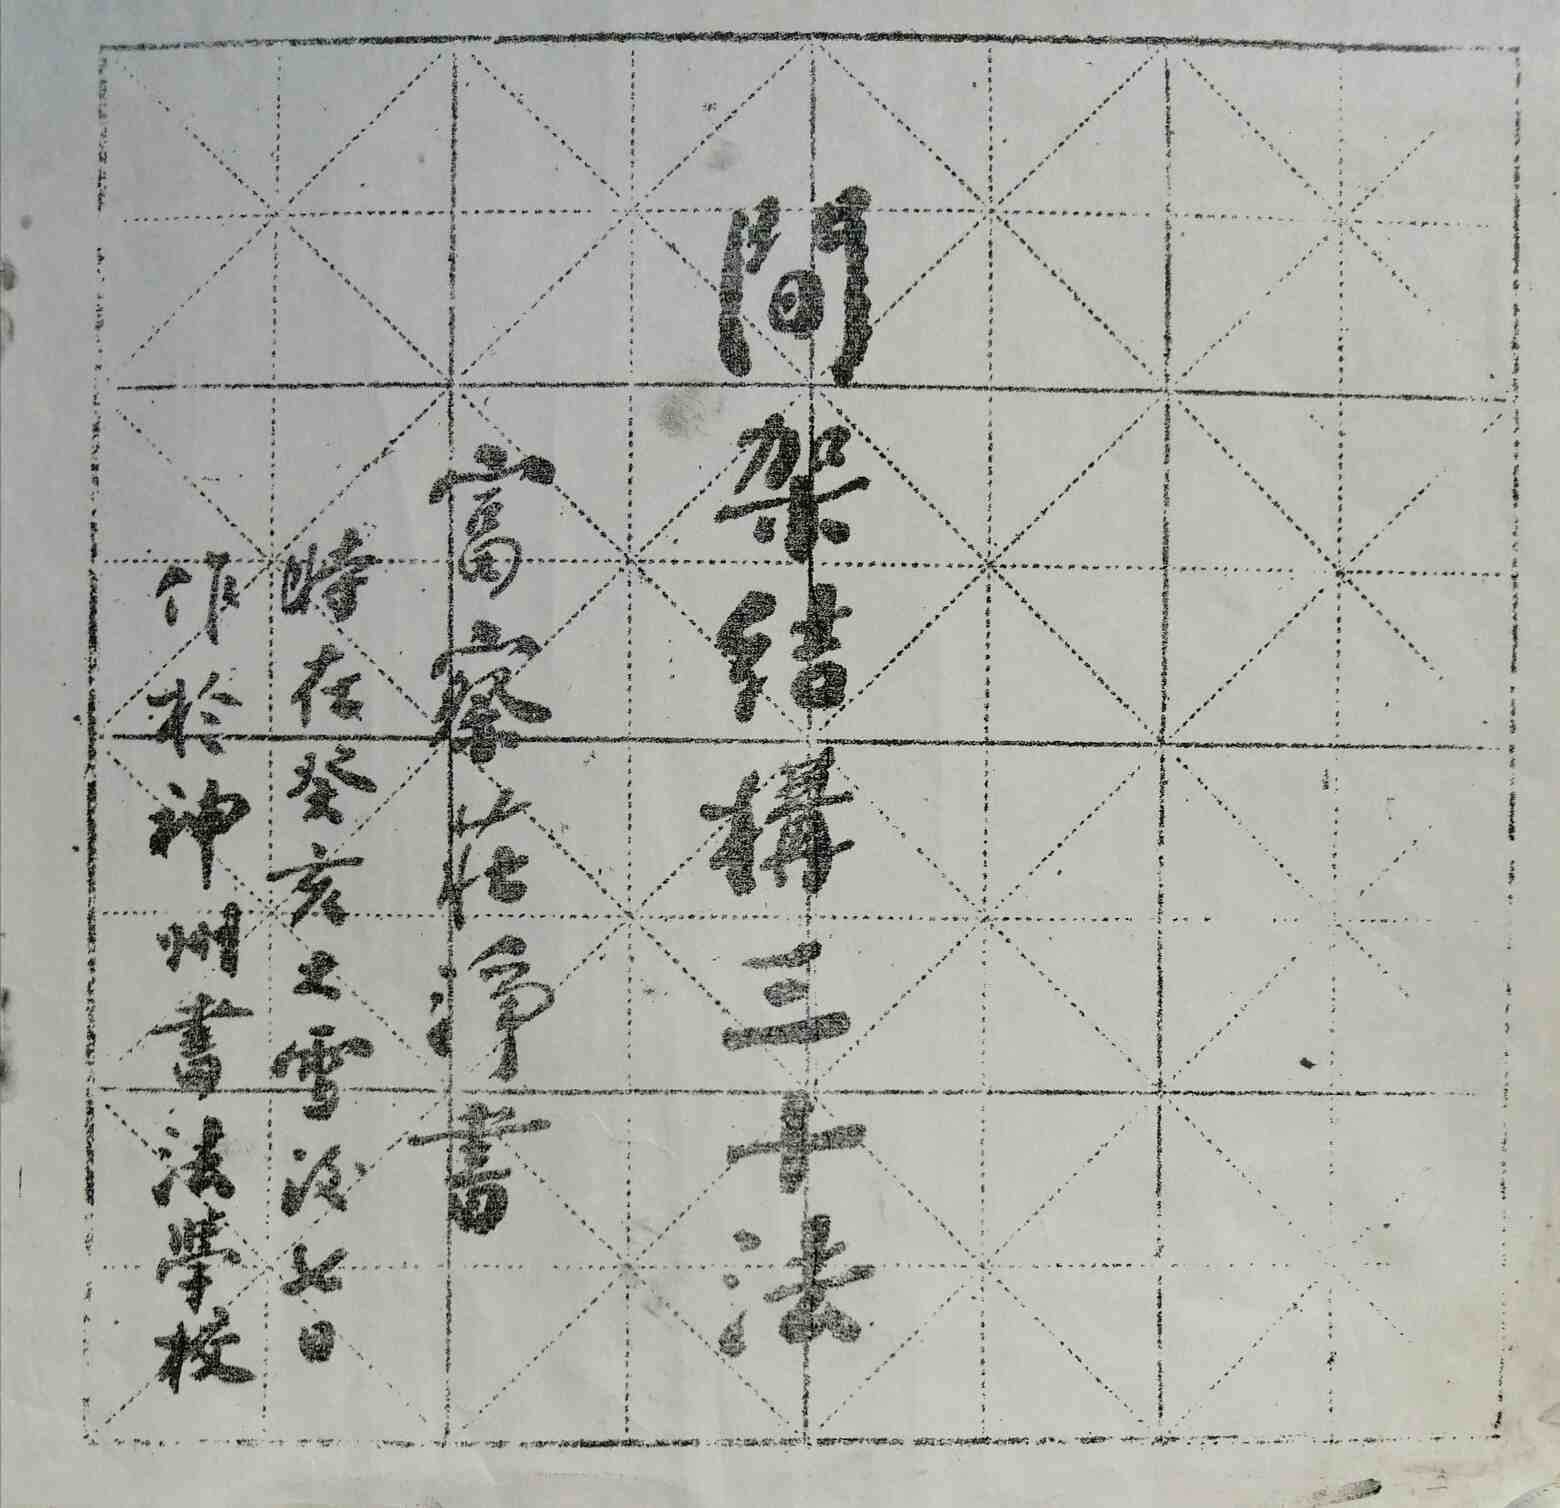 間架結構三十法
富察莊淨書
時在癸亥大雪後七日
作於神州書法學校